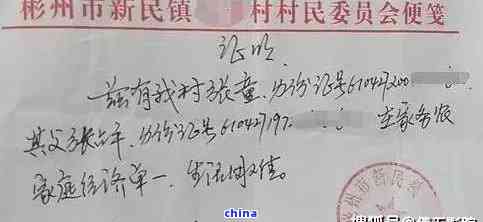 彬州市新民镇 村村民委员会便笺
证明
兹有我村张童、身份证号610427200
其父张占平、身份证号610427197 在家务农
家庭经济单一、生活困难。
州市新民镇
china